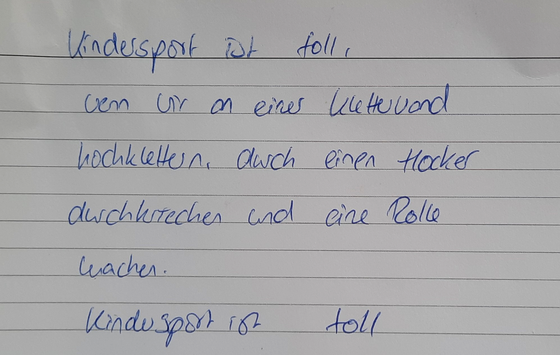 Kindersport ist toll,
wenn wir an einer Kletterwand
hochklettern, durch einen Hocker
durchkriechen und eine Rolle
machen.
Kindersport ist toll